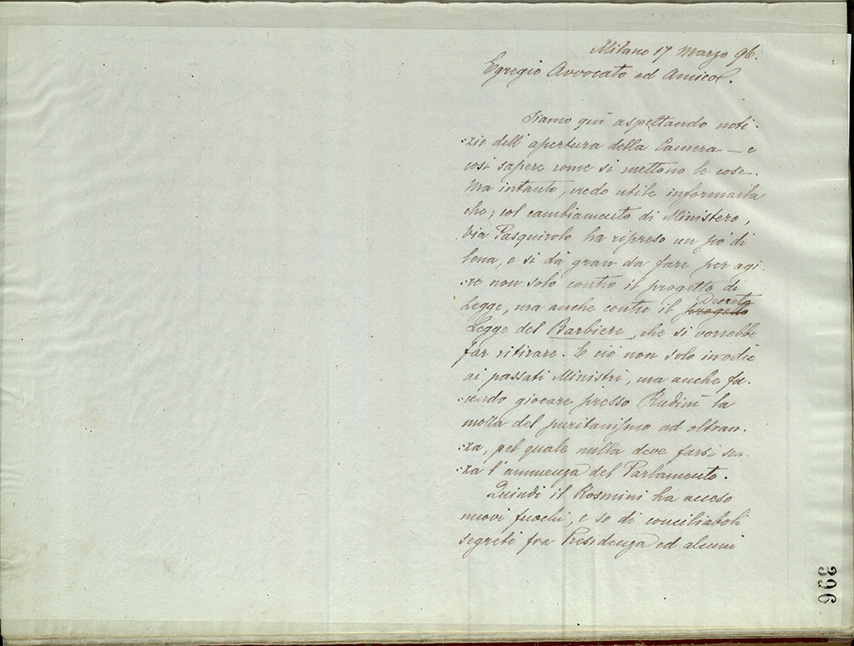 Milano 17 Marzo 96.
Egregio Avvocato ed Amico.
Siamo quì aspettando noti-
:zie dell'apertura della Camera — e
così sapere come si mettono le cose.
Ma intanto, vedo utile informarla
che, col cambiamento di Ministero,
Via Pasquirolo ha ripreso un pò di
lena, e si dà gran da fare per agi-
:re non solo contro il progetto di
Legge, ma anche contro il progetto Decreto
Legge del Barbiere, che si vorrebbe
far ritirare. E ciò non solo in odio
ai passati Ministri, ma anche fa-
:cendo giocare presso Rudinì la
molla del puritanismo ad oltran-
:za, pel quale nulla deve farsi sen-
:za l'annuenza del Parlamento.
Quindi il Rosmini ha acceso
nuovi fuochi, e so di conciliaboli
segreti fra Presidenza ed alcuni
396